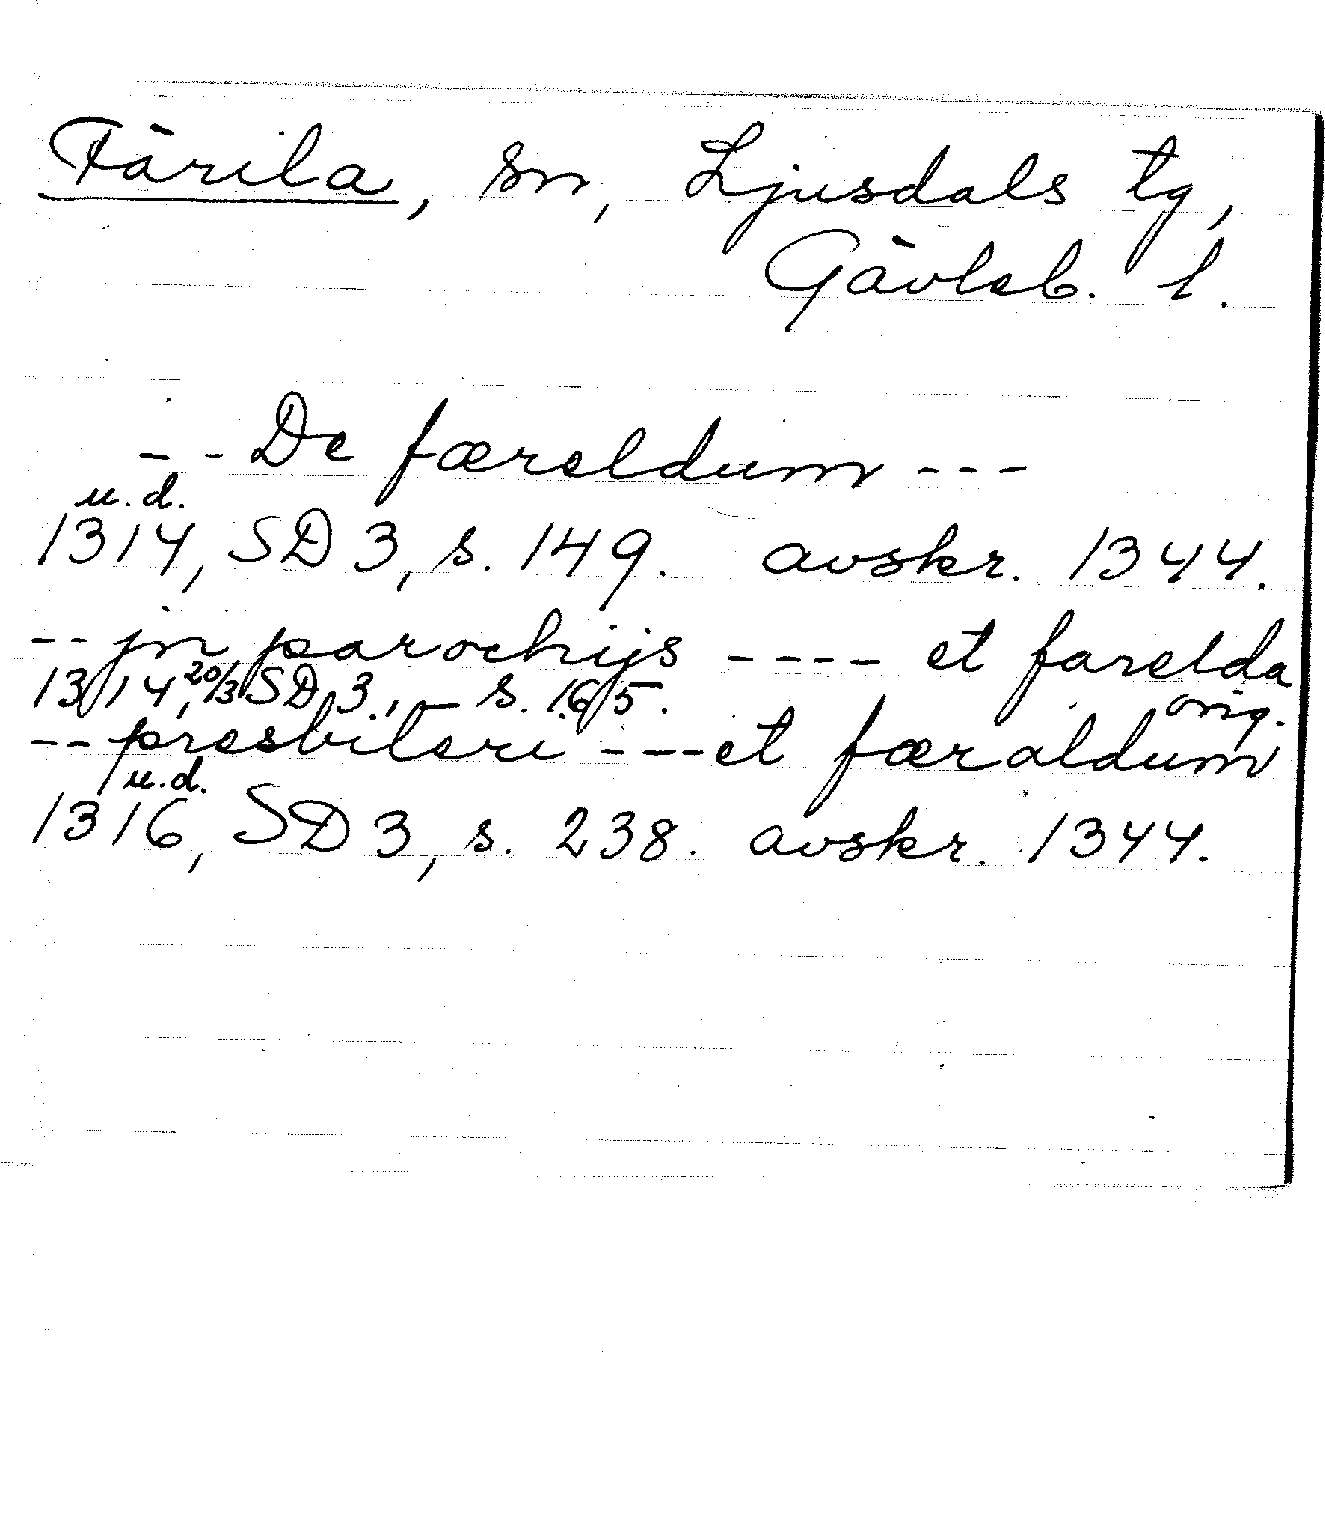 Färila, sn, Ljusdals tg,
Gävleb. l.
-- De færeldum ---
u.d.
1314, SD 3, s. 149. avskr. 1344.
-- jn parochijs ---- et farelda
1314, 20/3 SD 3, s. 165. orig.
-- presbiteri --- et færaldum
u.d.
1316, SD 3, s. 238. avskr. 1344.